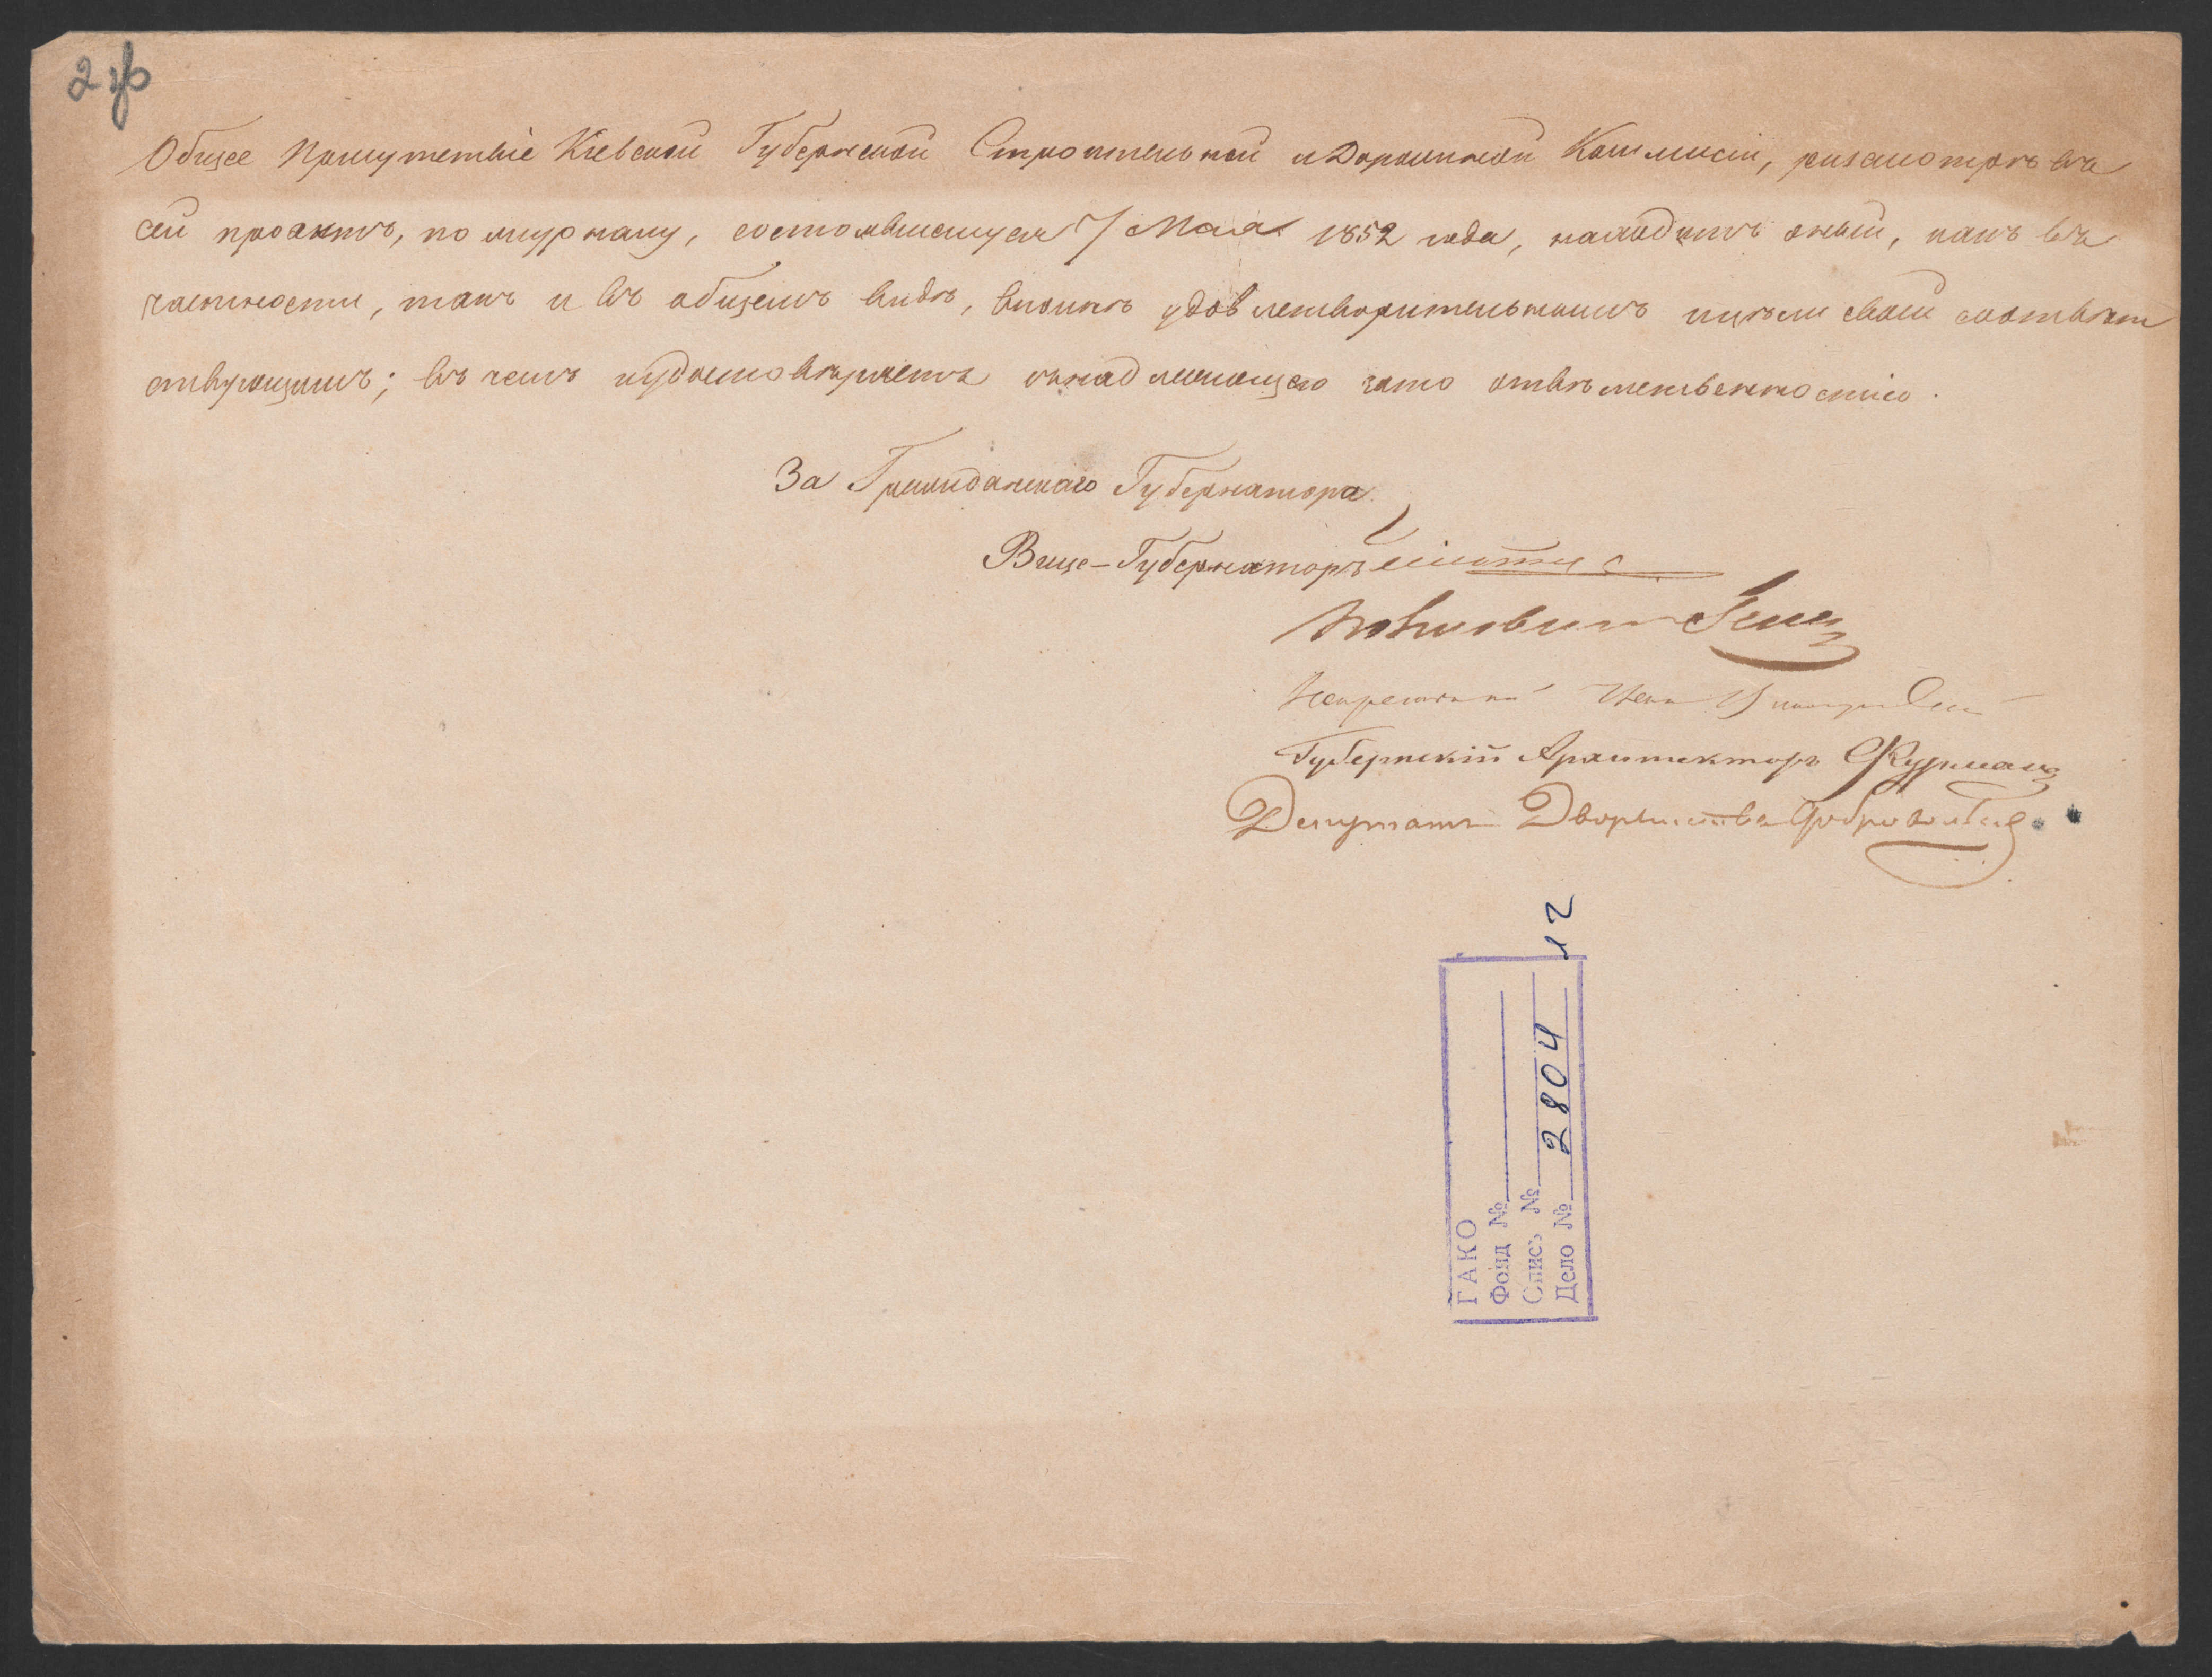 2
Общее Присутствіе Кіевской Губернской Строительной и Дорожной Коммисіи, разсмотрѣвъ
сей проэктъ, по журналу, состоявшемуся 7 Мая 1852 года, находитъ оный, какъ въ
частности, такъ и въ общемъ видѣ, вполнѣ удовлетворительнымъ и цѣли своей соотвѣт
ствующимъ; въ чемъ и удостовѣряетъ съ надлежащею отвѣтственностію.
За Гражданскаго Губернатора
Вице-Губернаторъ
Губернскій Архитекторъ
Депутатъ Дворянства
ГАКО
Фонд №
Опись №
Дело № 2804 л 2